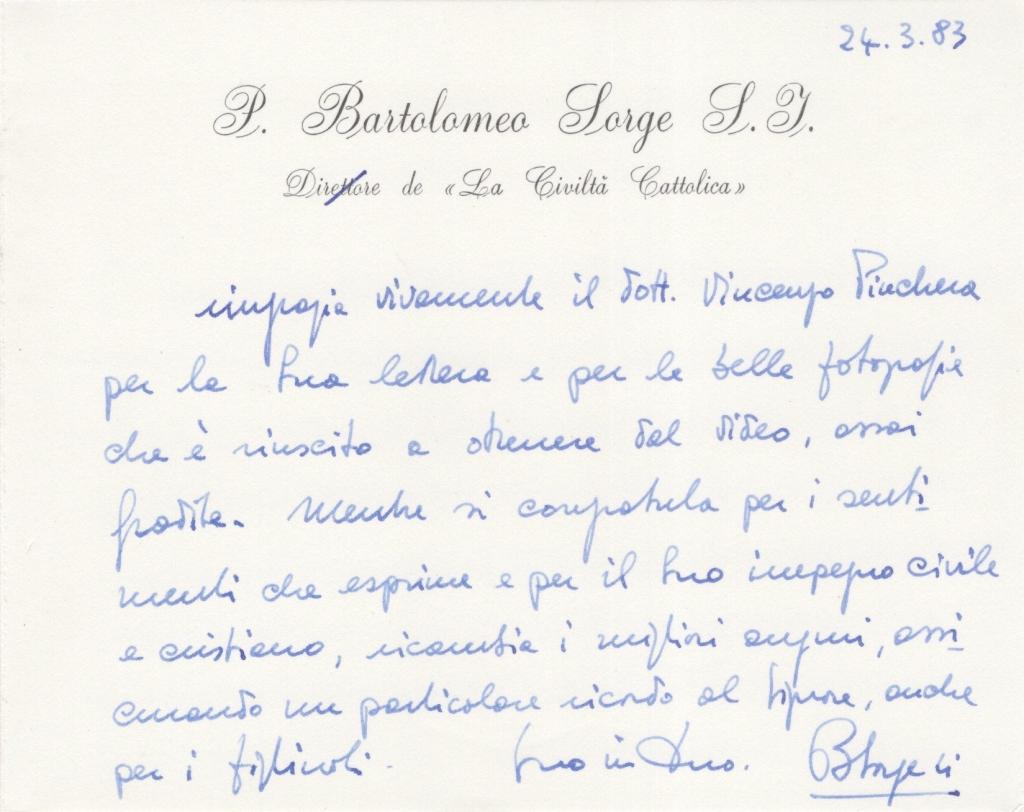 24.3.83
P. Bartolomeo Sorge S.J.
Direttore de «La Civiltà Cattolica»
ringrazia vivamente il dott. Vincenzo Pinchera
per la Sua lettera e per le belle fotografie
che è riuscito a ottenere dal video, assai
gradite. Mentre si congratula per i senti-
menti che esprime e per il Suo impegno civile
e cristiano, ricambia i migliori auguri, assi-
curando un particolare ricordo al Signore, anche
per i figliuoli. Suo in Dno. BSorge sj